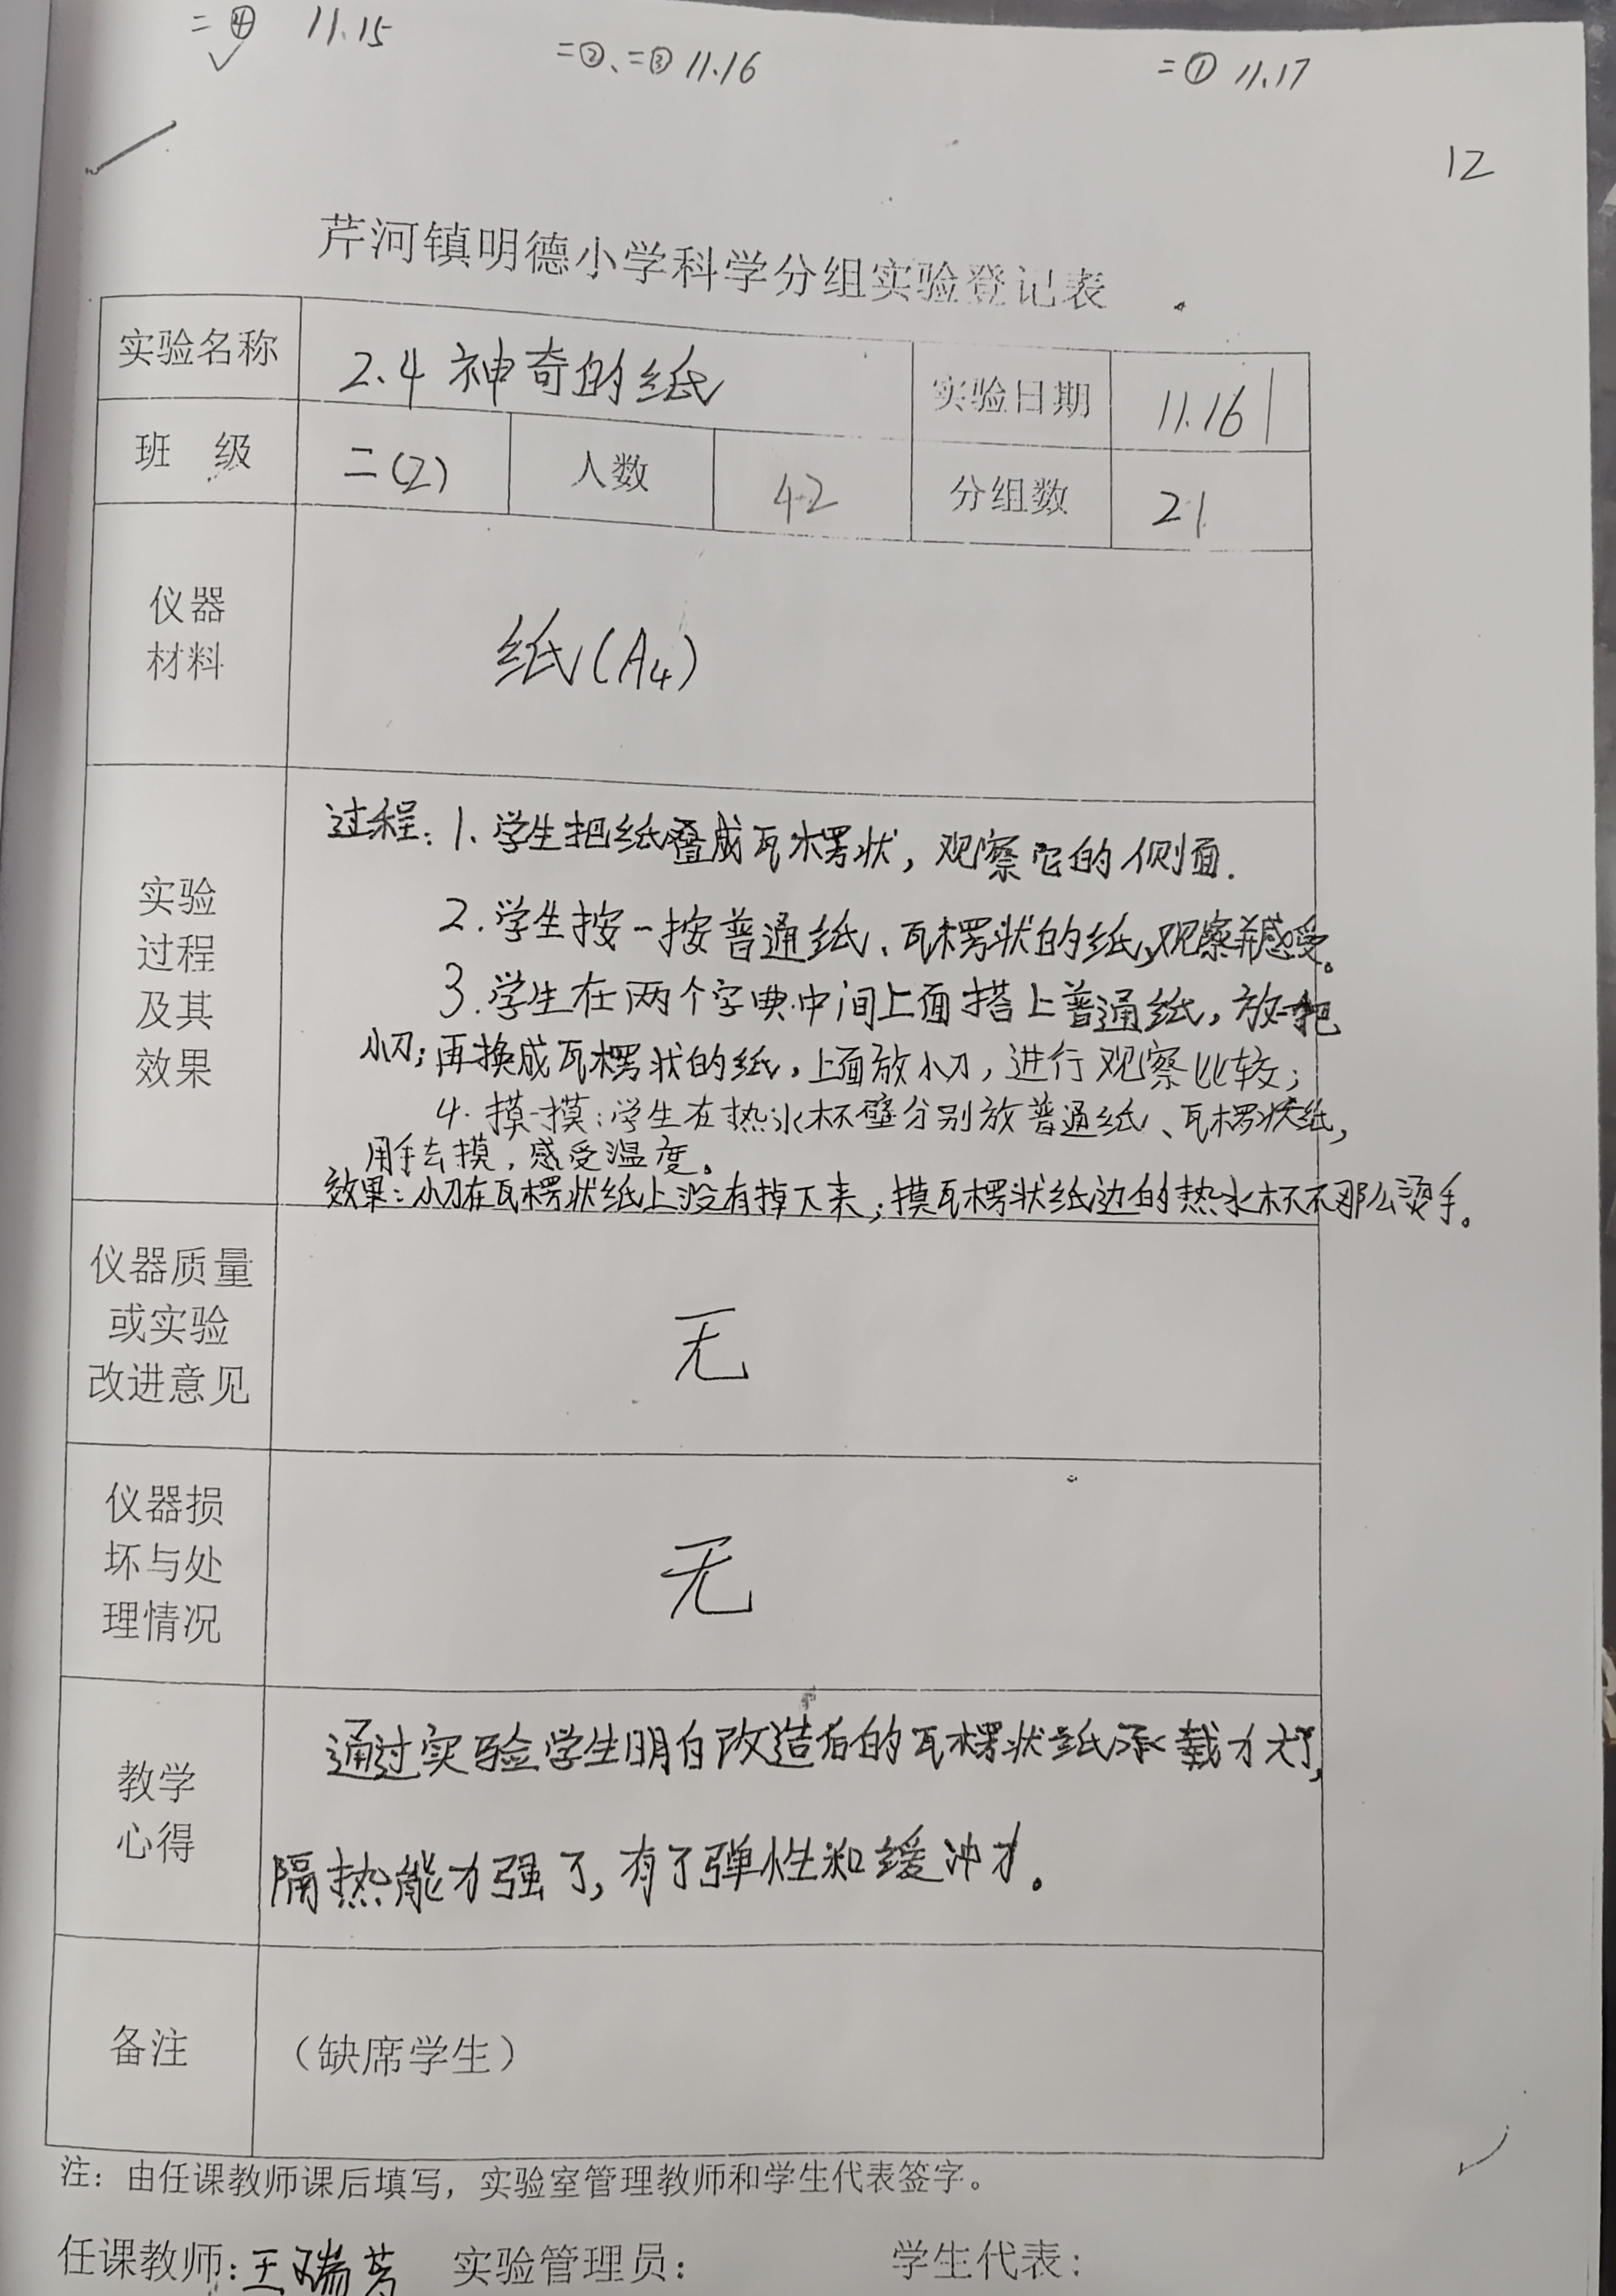 二④ 11.15
二②、二③ 11.16
二① 11.17
12
芹河镇明德小学科学分组实验登记表
实验名称 2.4 神奇的纸 实验日期 11.16
班 级 二(2) 人数 42 分组数 21
仪器
材料
纸(A4)
实验
过程
及其
效果
过程:1.学生把纸叠成瓦楞状,观察它的侧面.
2.学生按一按普通纸、瓦楞状的纸,观察并感受。
3.学生在两个字典中间上面搭上普通纸,放一把
小刀;再换成瓦楞状的纸,上面放小刀,进行观察比较;
4.摸一摸:学生在热水杯壁分别放普通纸、瓦楞状纸,
用手去摸,感受温度。
效果:小刀在瓦楞状纸上没有掉下来;摸瓦楞状纸边的热水杯不那么烫手。
仪器质量
或实验
改进意见
无
仪器损
坏与处
理情况
无
教学
心得
通过实验学生明白改造后的瓦楞状纸承载力大了,
隔热能力强了,有了弹性和缓冲力。
备注
(缺席学生)
注:由任课教师课后填写,实验室管理教师和学生代表签字。
任课教师:王瑞芳 实验管理员: 学生代表: